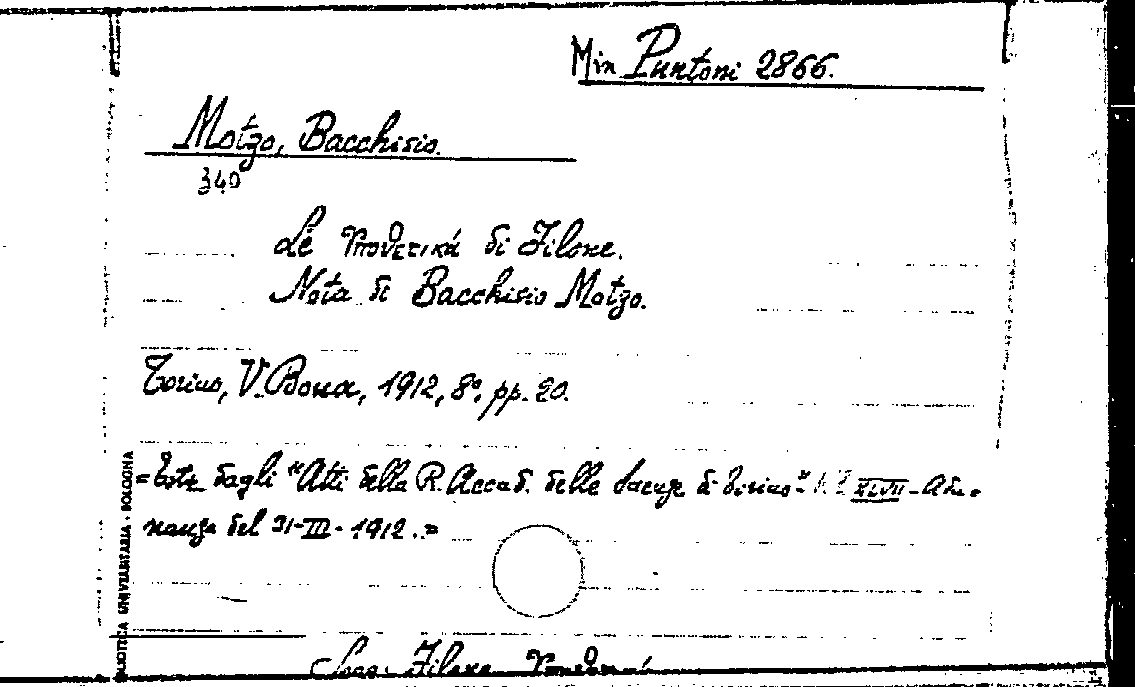 Min Puntoni 2866.
Motzo, Bacchisio.
340
Le Ὑποθετικά di Filone.
Nota di Bacchisio Motzo.
Torino, V. Bona, 1912, 8°, pp. 20.
=Estr. dagli "Atti della R. Accad. delle Scienze di Torino" - XLVII - Adu=
nanza del 31-III-1912.=
BIBLIOTECA UNIVERSITARIA - BOLOGNA
Filone